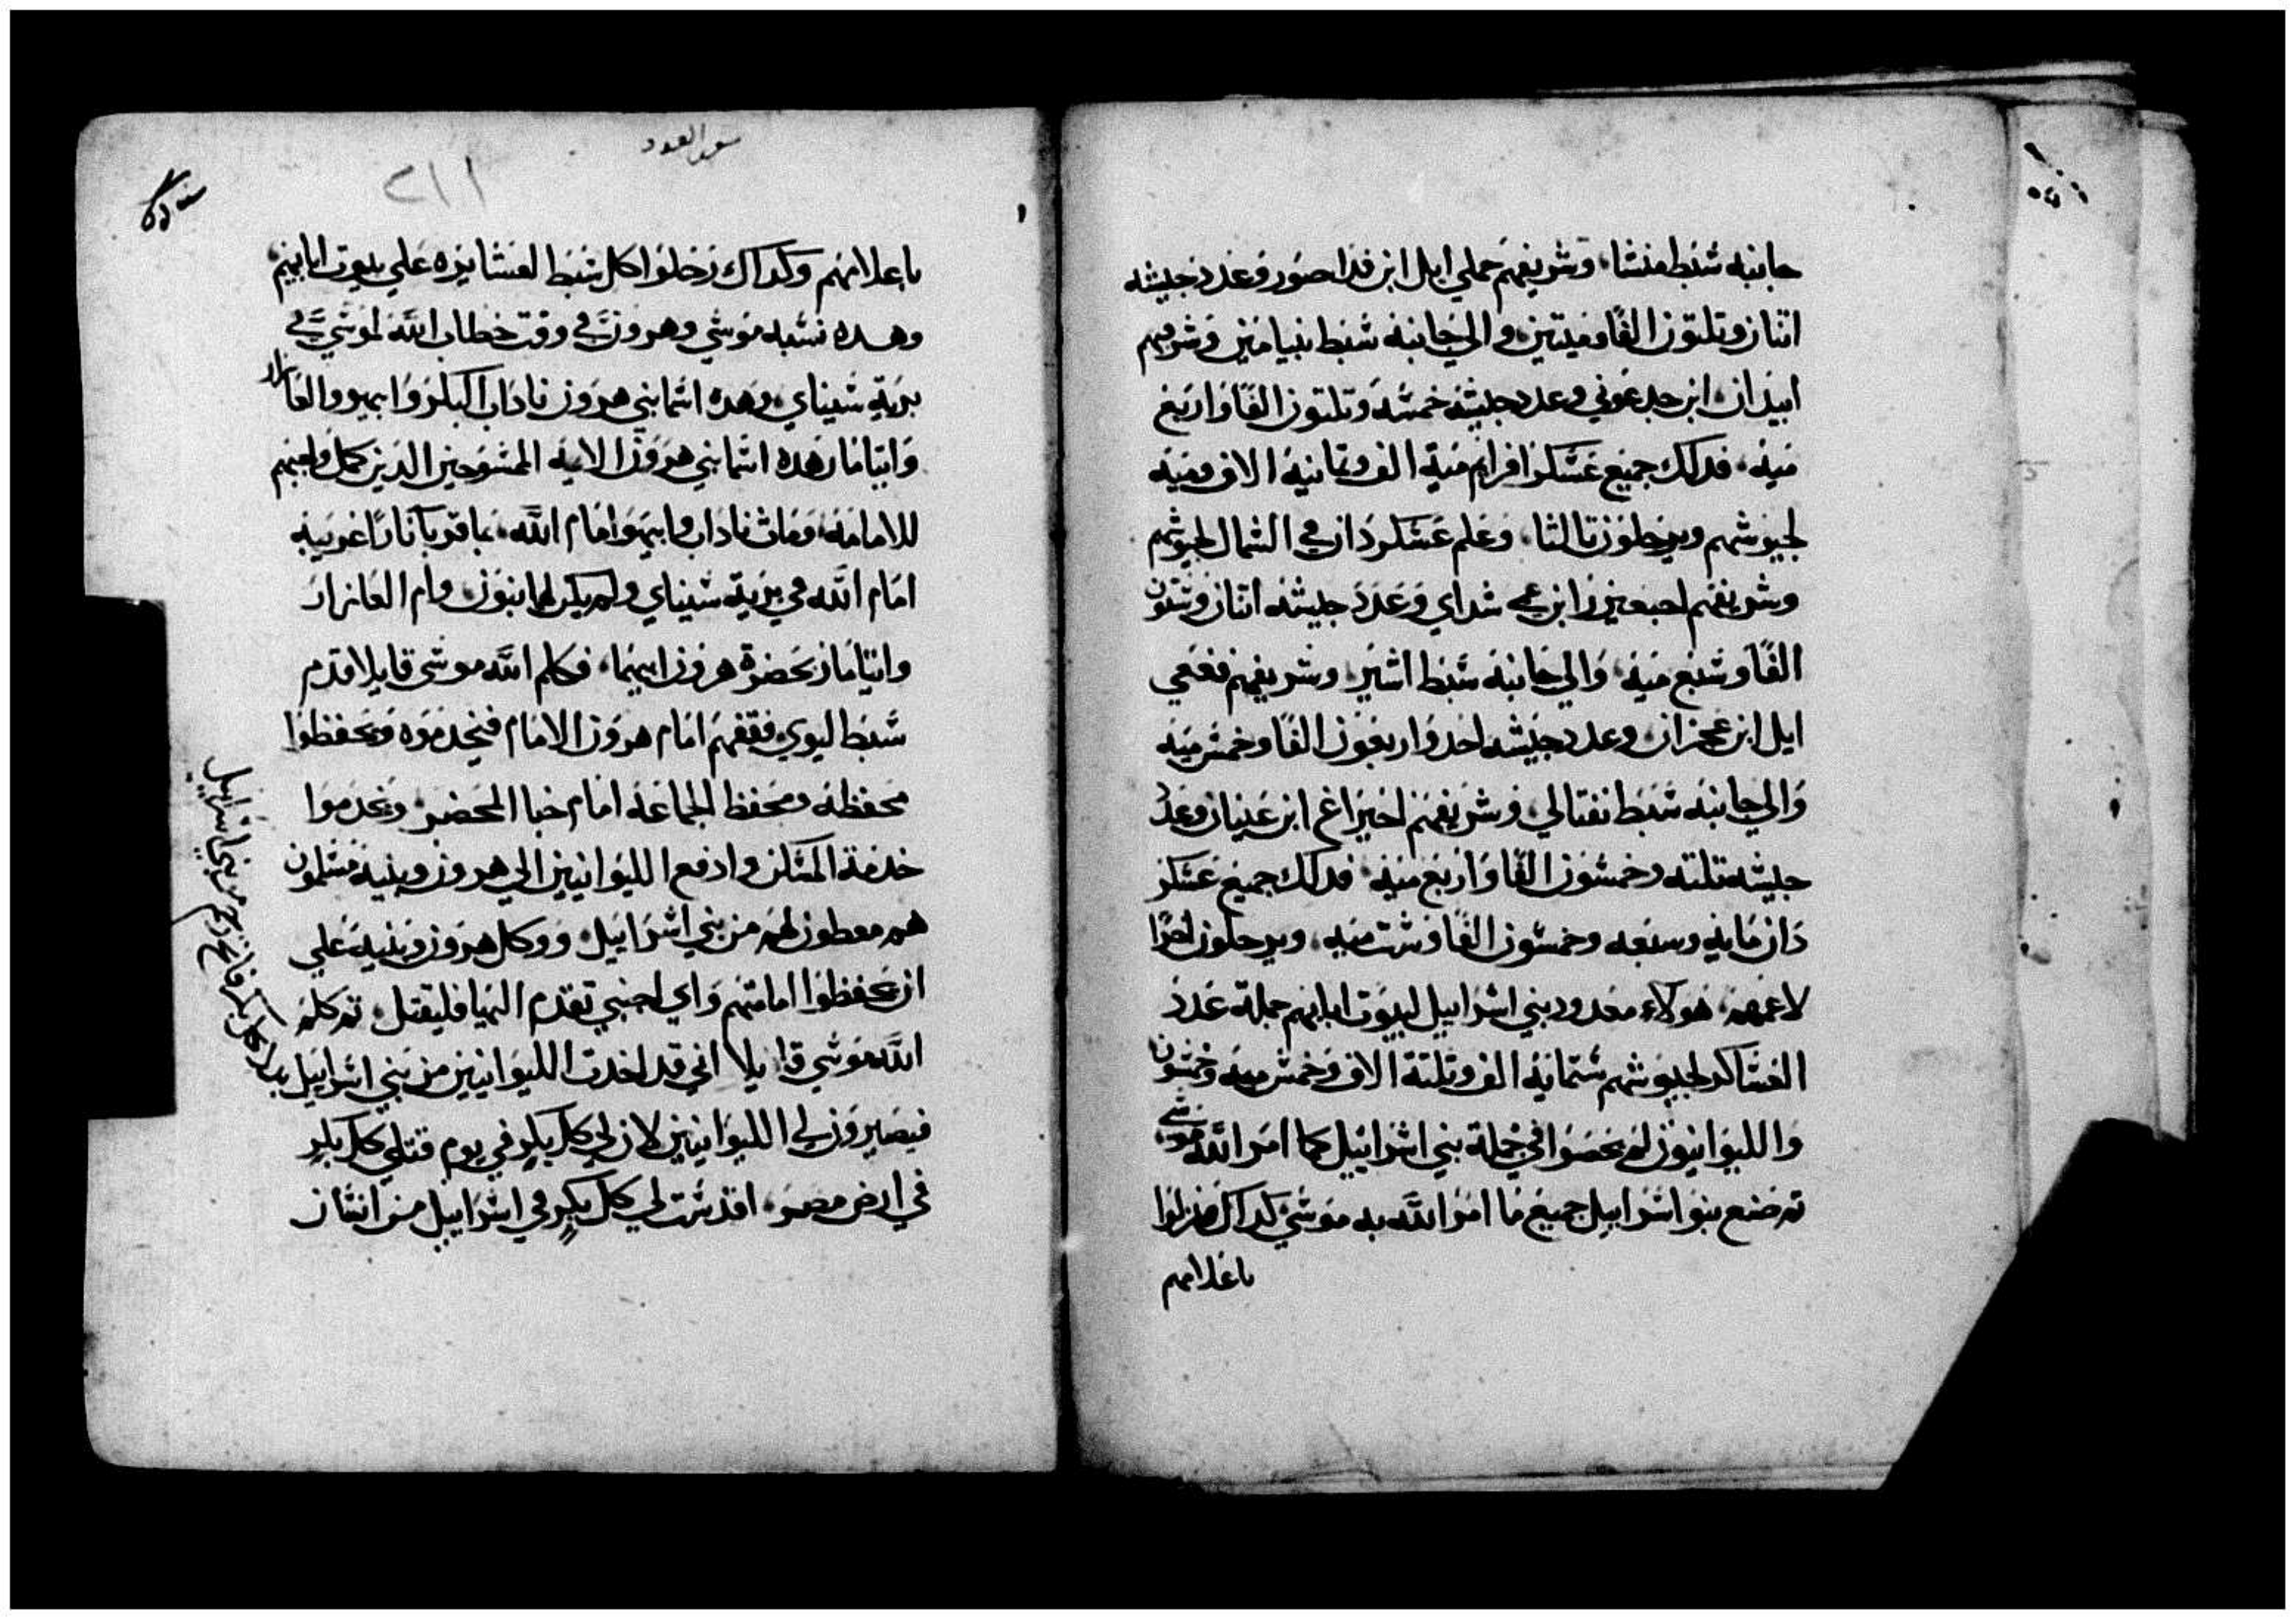 جانبه شبط منشا، وشريفهم جملي ايل ابن فدا صور وعدد جيشه
اتنان وتلتون الفا وميتين والي جانبه شبط بنيامين وشريفهم
ابيدان ابن جدعوني وعدد جيشه خمسه وتلتون الفا واربع
ميه، فدلك جميع عسكر افرايم مية الف وتمانية الاف وميه
لجيوشهم ويرحلون تالثا، وعلم عسكر دان في الشمال لجيوشهم
وشريفهم احيعيزر ابن عمي شداي وعدد جيشه اتنان وستون
الفا وسبع ميه، والي جانبه شبط اشير وشريفهم فغعي
ايل ابن عخران وعدد جيشه احد واربعون الفا وخمس ميه
والي جانبه شبط نفتالي وشريفهم احيراع ابن عينان وعدد
جيشه تلته وخمسون الفا واربع ميه، فدلك جميع عسكر
دان مايه وسبعه وخمسون الفا وست ميه، ويرحلون اخرا
لاعلامهم، هولاء معدود بني اسراييل لبيوت ابايهم جملة عدد
العساكر لجيوشهم ستماية الف وتلتة الاف وخمس ميه وخمسون
والليوانيون لم يحصوا في جملة بني اسراييل كما امر الله موسي
تم صنع بنو اسراييل جميع ما امر الله به موسي كداك نزلوا
باعلامهم
سفر العدد
٢١١
باعلامهم وكداك رحلوا كل شبط لعشايره علي بيوت ابايهم
وهده نسبه موسي وهرون في وقت خطاب الله لموسي في
برية سيناي، وهده اسما بني هرون ناداب البكر وابيهو والعازار
وايتامار هده اسما بني هرون الايمه الممسوحين الدين كمل واجبهم
للامامه، ومات ناداب وابيهو امام الله، بما قربا نارا غريبه
امام الله في برية سيناي ولم يكن لهما بنون، وام العازار
وايتامار بحضرة هرون ابيهما، فكلم الله موسي قايلا قدم
شبط ليوي فقفهم امام هرون الامام فيخدموه ويحفظوا
محفظه ومحفظ الجماعه امام خبا المحضر ويخدموا
خدمة المسكن وادفع الليوانيين الي هرون وبنيه مسلمون
هم معطون لهم من بني اسراييل، ووكل هرون وبنيه علي
ان يحفظوا امامتهم واي اجنبي تقدم اليها فليقتل، تم كلم
الله موسي قايلا اني قد اخدت الليوانيين من بني اسراييل بدل
كل بكر فاتح رحم من بني اسراييل
فيصيرون لي الليوانيين لان لي كل بكر في يوم قتلي كل بكر
في ارض مصر، اقدست لي كل بكر في اسراييل من انسان